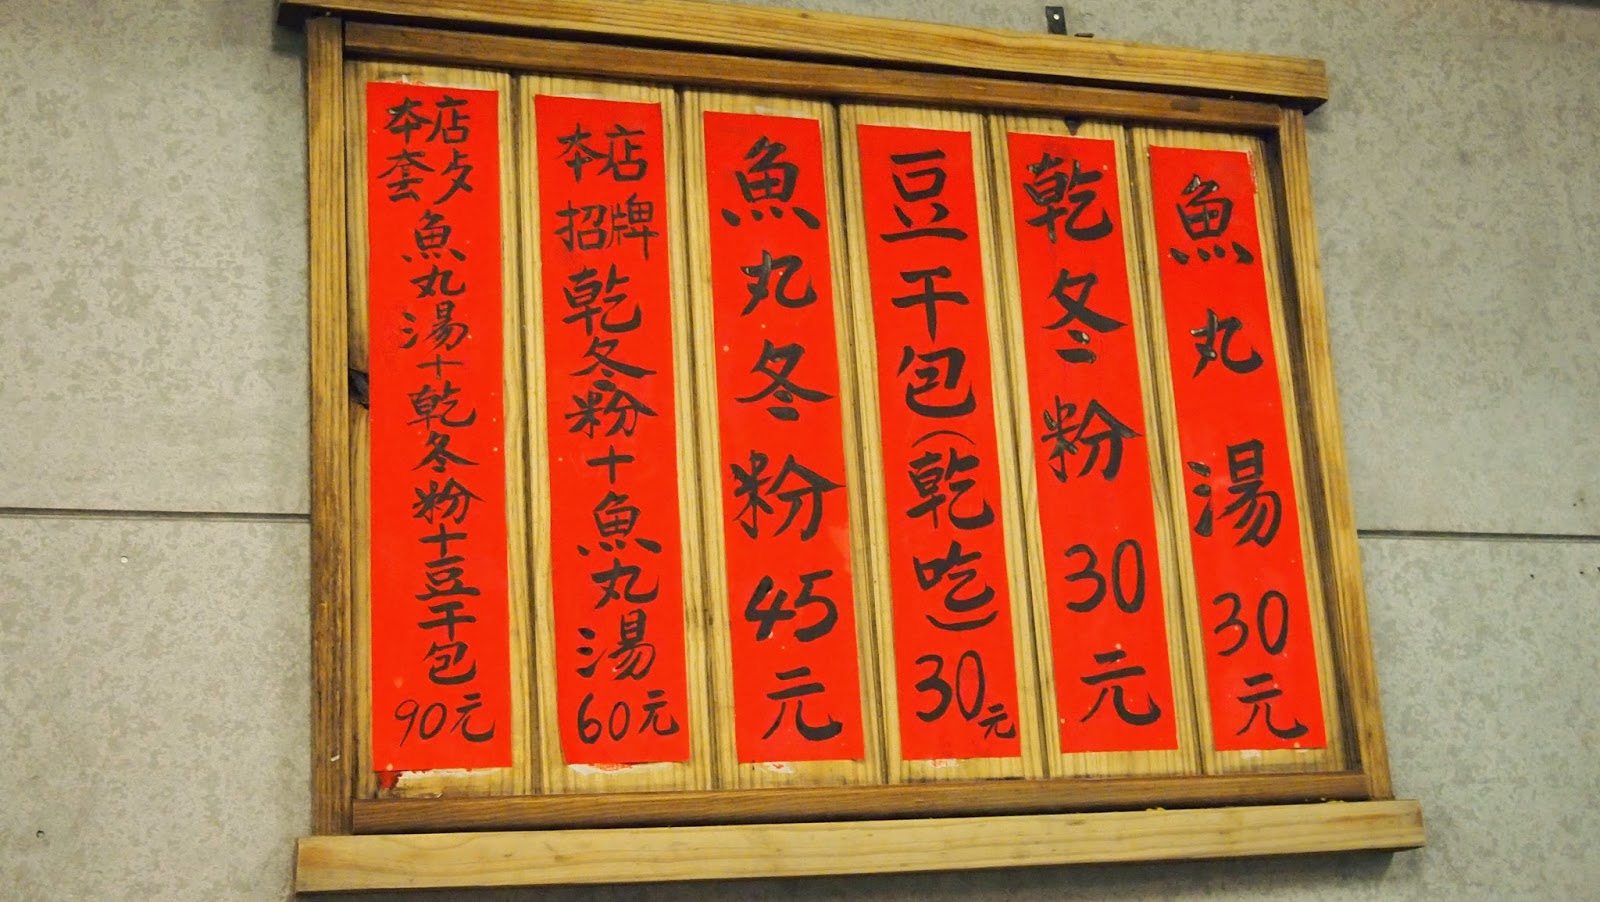 魚丸湯30元
乾冬粉30元
豆干包(乾吃)30元
魚丸冬粉45元
本店招牌乾冬粉+魚丸湯60元
本店套歺魚丸湯+乾冬粉+豆干包90元